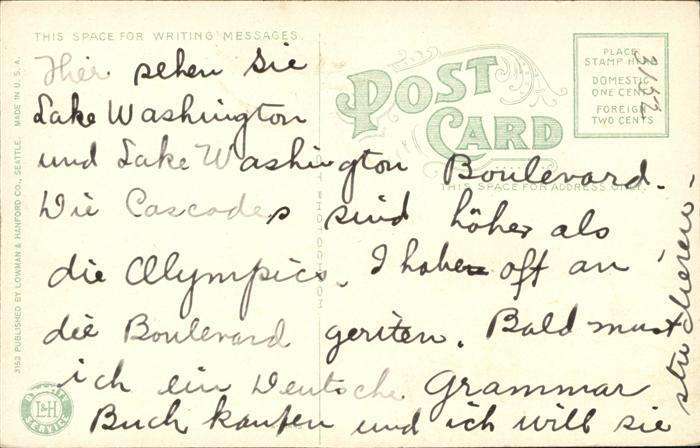 THIS SPACE FOR WRITING MESSAGES.
POST CARD
PLACE
STAMP
DOMESTIC
ONE CENT
FOREIGN
TWO CENTS
3152
THIS SPACE FOR ADDRESS ONLY.
3152 PUBLISHED BY LOWMAN & HANFORD CO., SEATTLE. MADE IN U.S.A.
Hier sehen Sie
Lake Washington
und Lake Washington Boulevard.
Die Cascades sind höher als
die Olympics. I habe oft an
die Boulevard geriten. Bald must
ich ein Deutsche Grammar
Buch kaufen und ich will sie
studieren!
L&H
SERVICE